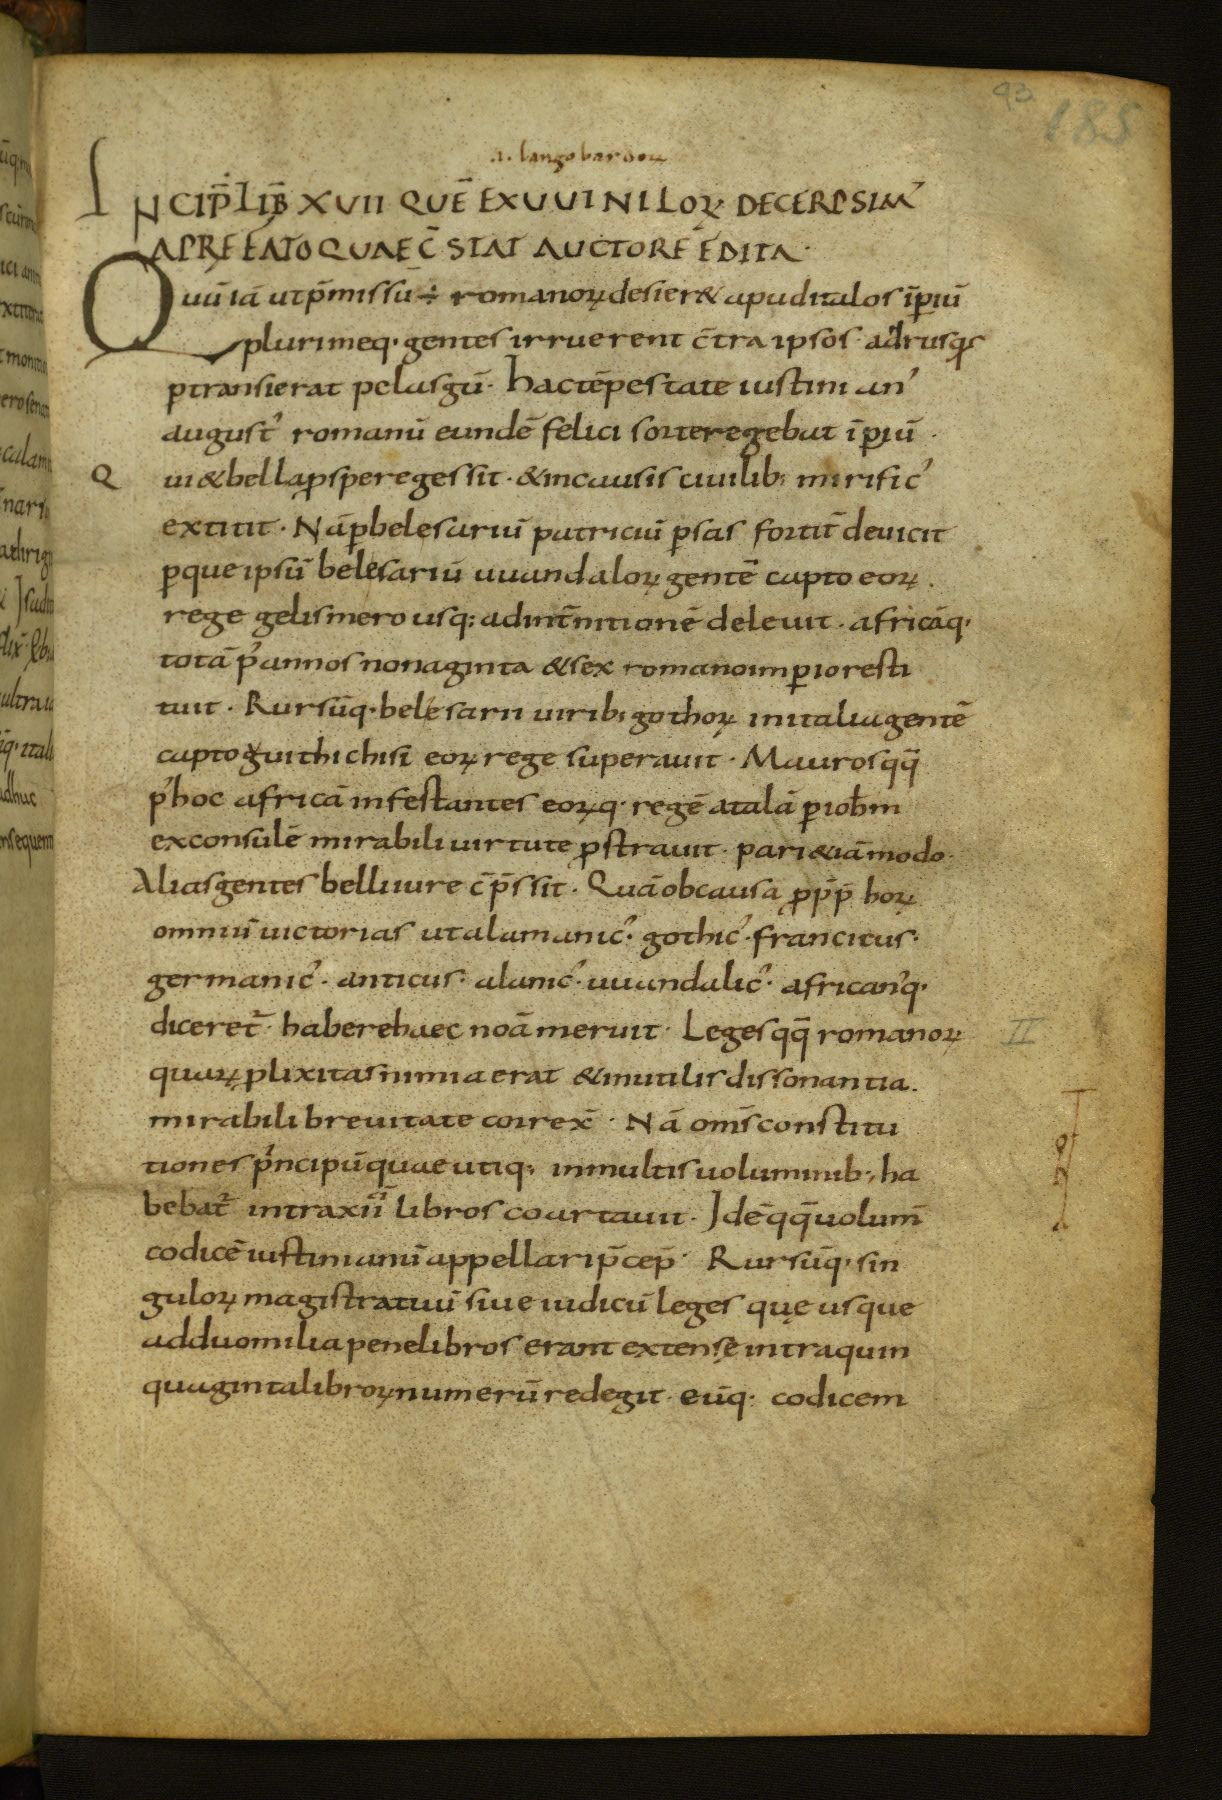 93
185
.i. langobardoꝝ
INCIP̄ LIB̄ XVII QUĒ EX UUINILOꝜ DECERPSIM᾿
A PREFATO QUAE C̄STAT AUCTORE ĒDITA·
Quū iā ut p̄missū ÷ romanoꝝ desier& apud italos īꝑiū
plurimeq· gentes irruerent c̄tra ipsos· adrusq;
ꝑtransierat pelasgū· hac tēpestate iustini an᾿
august᾿ romanū eundē felici sorte regebat īꝑiū·
Qui & bella ꝓspere gessit· & in causis ciuilib; mirific᾿
extitit· Nā ꝑ belesariū patriciū ꝑsas fortit̄ deuicit
ꝑque ipsū belesariū uuandaloꝝ gentē capto eoꝝ.
rege gelismero usq; ad int̄nitionē deleuit· africāq·
totā p᾿ annos nonaginta & sex romano imꝑio resti
tuit· Rursūq· belesarii uirib; gothoꝝ in italia gentē
capto guithichisī eoꝝ rege superauit· Mauros qq̄
p᾿ hoc africā infestantes eoꝝq· regē atalā ꝑ ioh̄m
exconsulē mirabili uirtute ꝓstrauit· pari & iā modo·
Alias gentes belli iure c̄p̄ssit· Quā ob causā ꝓp̄p̄ hoꝝ
omniū uictorias ut alamanic᾿· gothic᾿· francicus·
germanic᾿· anticus· alanic᾿· uuandalic᾿· african᾿q·
diceret᾿· habere haec noā meruit· Leges qq̄ romanoꝝ
II
quaꝝ ꝓlixitas nimia erat & inutilis dissonantia.
mirabili breuitate correx̄· Nā om̄s constitu
tiones p᾿ncipū quae utiq; in multis uoluminib; ha
bebat᾿ intra xii libros coartauit· Idēqq̄ uolum̄
codicē iustinianū appellari p̄cep̄· Rursūq· sin
guloꝝ magistratuū siue iudicū leges quę usque
ad duo milia pene libros erant extensę intra quin
quaginta libroꝝ numerū redegit· eūq· codicem